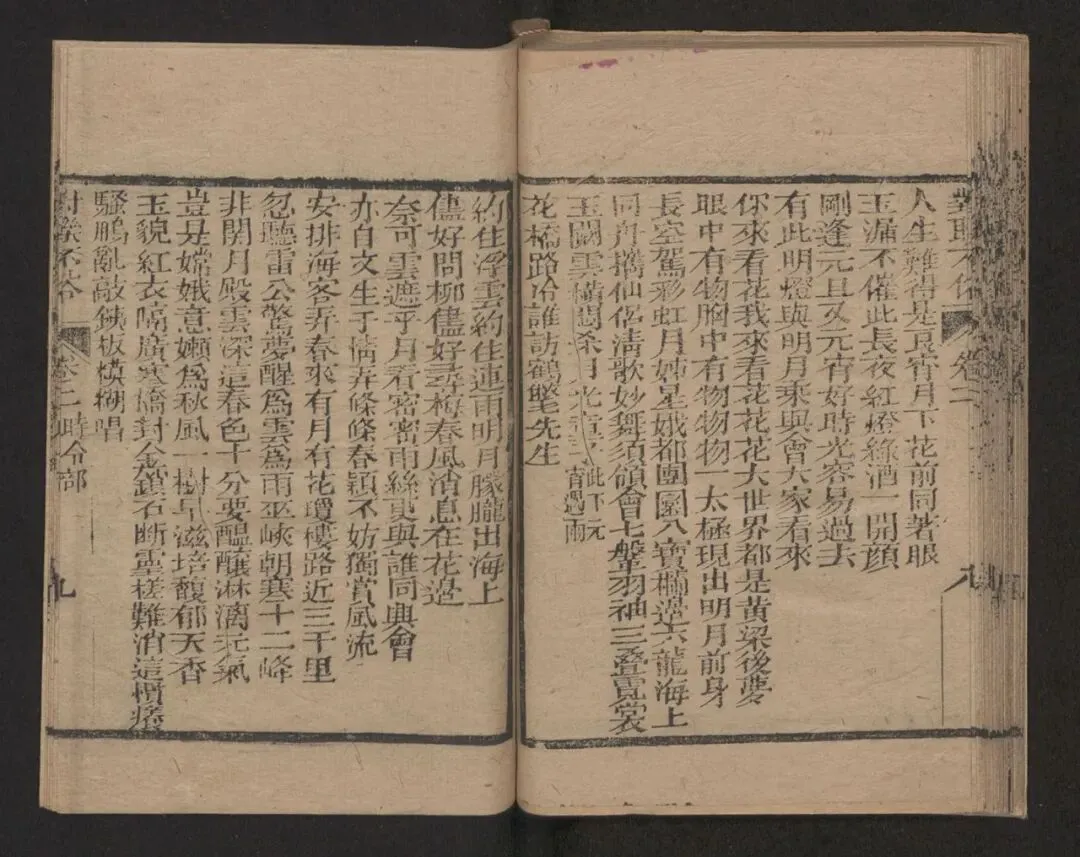 對聯不俗 卷二 八
人生難得是良宵月下花前同著眼
玉漏不催此長夜紅燈綠酒一開顏
剛逢元旦又元宵好時光容易過去
有此明燈與明月乘興會大家看來
你來看花我來看花花花大世界都是黃梁後夢
眼中有物胸中有物物物一太極現出明月前身
長空駕彩虹月姊星娥都團圞八寶欄邊六龍海上
同舟攜仙侶清歌妙舞須領會七盤羽袖三叠霓裳
玉關雲橫關杀月光 此下元宵遇雨
花橋路冷誰訪鶴墅先生
約住浮雲約住連雨明月朦朧出海上
儘好問柳儘好尋梅春風消息在花邊
奈可雲遮乎月看密密雨絲更與誰同興會
亦自文生于情弄條條春穎不妨獨賞風流
安排海客弄春來有月有花瓊樓路近三千里
忽聽雷公驚夢醒為雲為雨巫峽朝寒十二峰
非關月殿雲深這春色十分要醞釀淋漓元氣
豈是嫦娥意嬾為秋風一樹早滋培馥郁天香
玉貌紅衣隔廣寒橋對金鎖不斷靈槎難消這
騷鵬亂敲鉄板糢糊唱
對聯不俗 卷二 時令部 九